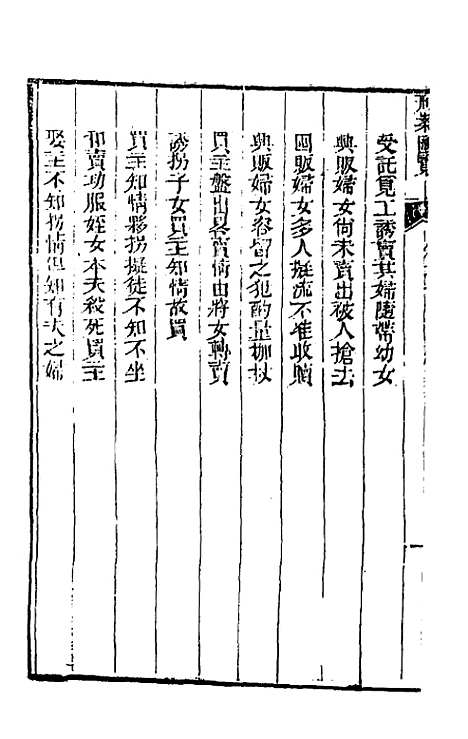 受託覓工誘賣其婦隨帶幼女
興販婦女尚未賣出被人搶去
圖販婦女多人擬流不准收贖
興販婦女容留之犯酌量枷杖
買主盤出畧賣情由將女轉賣
誘拐子女買主知情故買
買主知情夥拐擬徒不知不坐
和賣功服姪女本夫殺死買主
娶主不知拐情但知有夫之婦